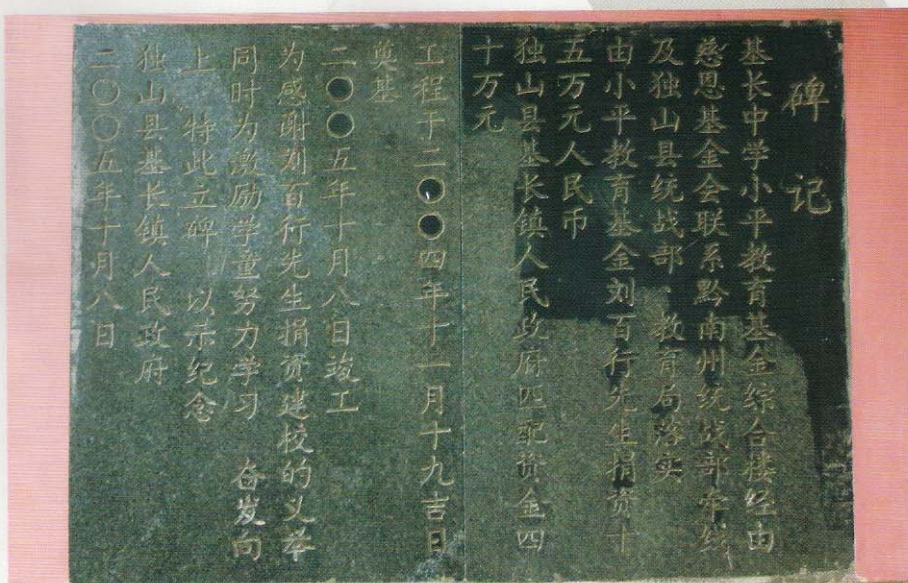 碑记
基长中学小平教育基金综合楼经由
慈恩基金会联系黔南州统战部牵线
及独山县统战部、教育局落实
由小平教育基金刘百行先生捐资十
五万元人民币
独山县基长镇人民政府匹配资金四
十万元
工程于二〇〇四年十一月十九吉日
奠基
二〇〇五年十月八日竣工
为感谢刘百行先生捐资建校的义举
同时为激励学童努力学习 奋发向
上 特此立碑 以示纪念
独山县基长镇人民政府
二〇〇五年十月八日